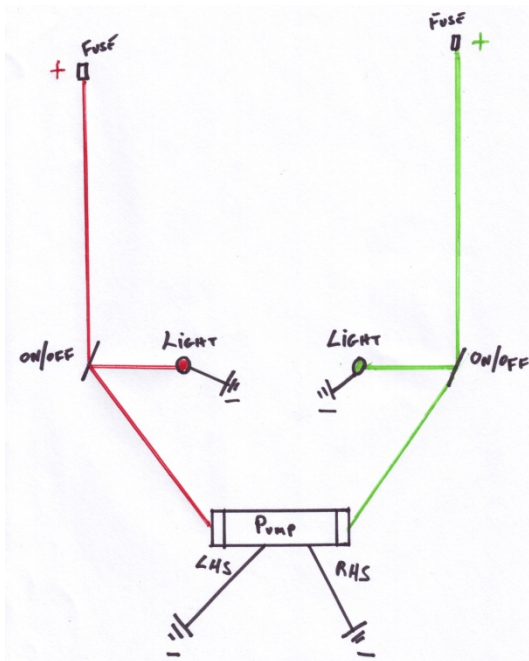 FUSE
+
FUSE
+
ON/OFF
LIGHT
LIGHT
ON/OFF
PUMP
LHS
RHS